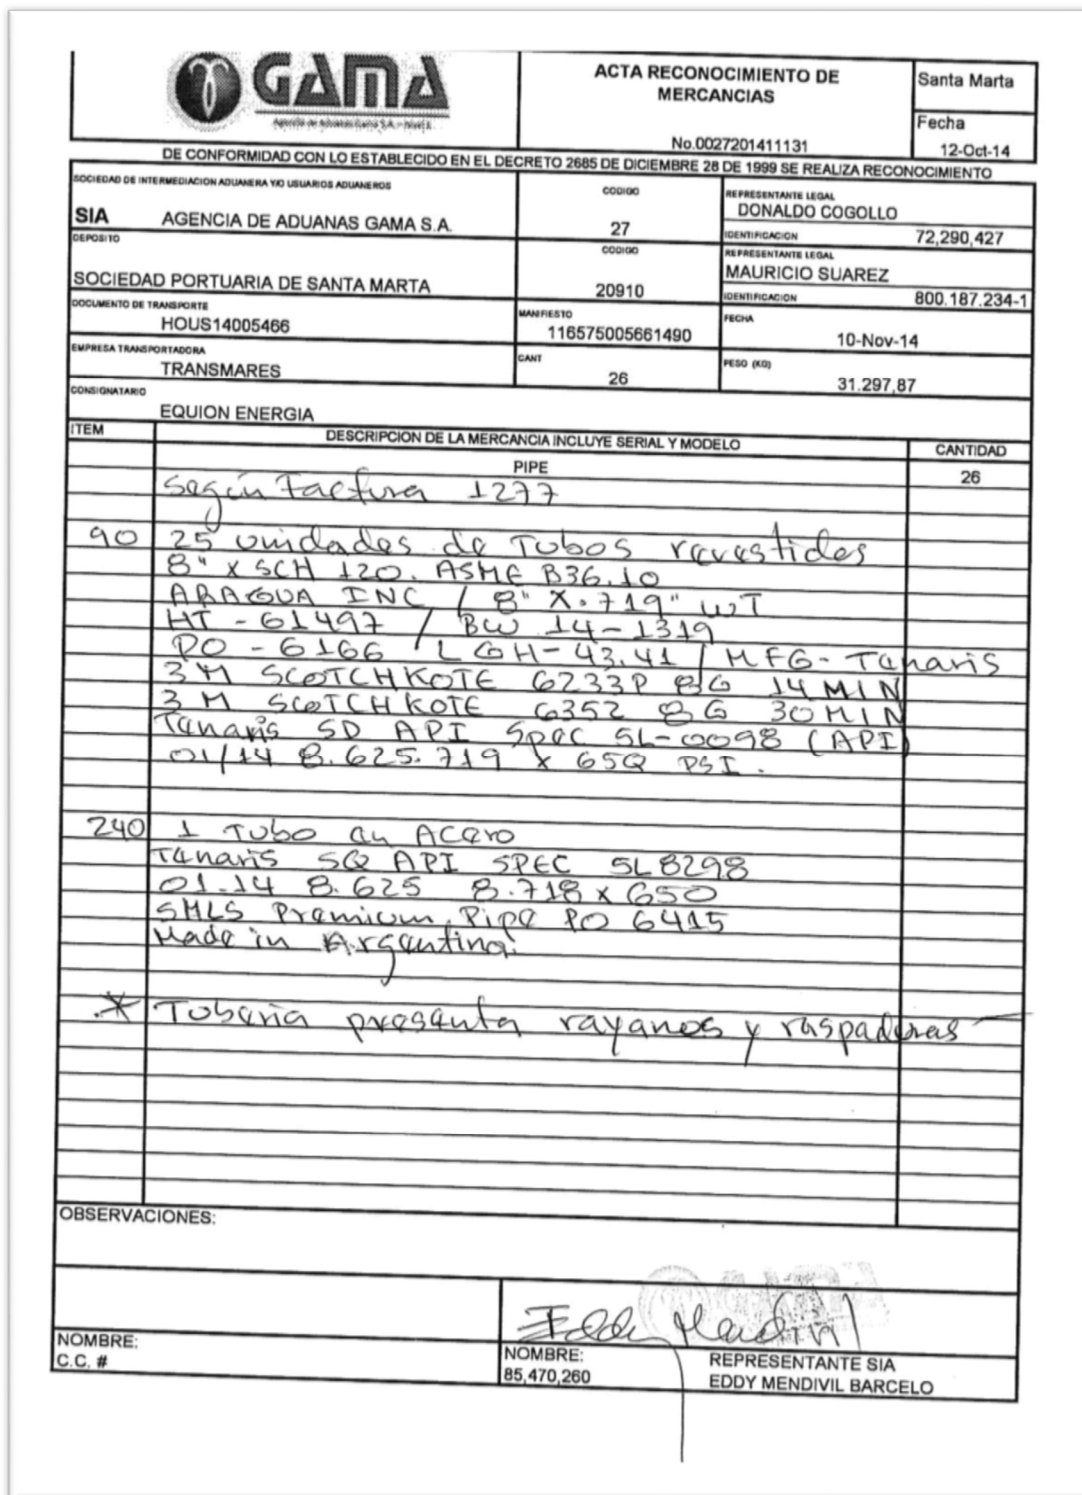 GAMA
Agencia de Aduanas Gama S.A. - Nivel 1
ACTA RECONOCIMIENTO DE
MERCANCIAS
No.0027201411131
Santa Marta
Fecha
12-Oct-14
DE CONFORMIDAD CON LO ESTABLECIDO EN EL DECRETO 2685 DE DICIEMBRE 28 DE 1999 SE REALIZA RECONOCIMIENTO
SOCIEDAD DE INTERMEDIACION ADUANERA Y/O USUARIOS ADUANEROS
SIA AGENCIA DE ADUANAS GAMA S.A.
CODIGO
27
REPRESENTANTE LEGAL
DONALDO COGOLLO
IDENTIFICACION 72,290,427
DEPOSITO
SOCIEDAD PORTUARIA DE SANTA MARTA
CODIGO
20910
REPRESENTANTE LEGAL
MAURICIO SUAREZ
IDENTIFICACION 800.187.234-1
DOCUMENTO DE TRANSPORTE
HOUS14005466
MANIFIESTO
116575005661490
FECHA
10-Nov-14
EMPRESA TRANSPORTADORA
TRANSMARES
CANT
26
PESO (KG)
31.297,87
CONSIGNATARIO
EQUION ENERGIA
ITEM DESCRIPCION DE LA MERCANCIA INCLUYE SERIAL Y MODELO CANTIDAD
PIPE 26
Según Factura 1277
90 25 unidades de Tubos revestidos
8" X SCH 120. ASME B36.10
ARAGUA INC / 8" X .719" WT
HT - 61497 / BW 14-1319
PO - 6166 / LGH - 43.41 / MFG - Tenaris
3M SCOTCHKOTE 6233P 8G 14 MIN
3M SCOTCHKOTE 6352 8G 30 MIN
Tenaris SD API Spec 5L-0098 (API)
01/14 8.625.719 X 65Q PSI.
240 1 Tubo en Acero
Tenaris SQ API SPEC 5L8298
01-14 8.625 8.718 x 650
SMLS Premium Pipe PO 6415
Made in Argentina.
* Tuberia presenta rayanes y raspaduras
OBSERVACIONES:
NOMBRE:
C.C. #
NOMBRE:
85,470,260
REPRESENTANTE SIA
EDDY MENDIVIL BARCELO